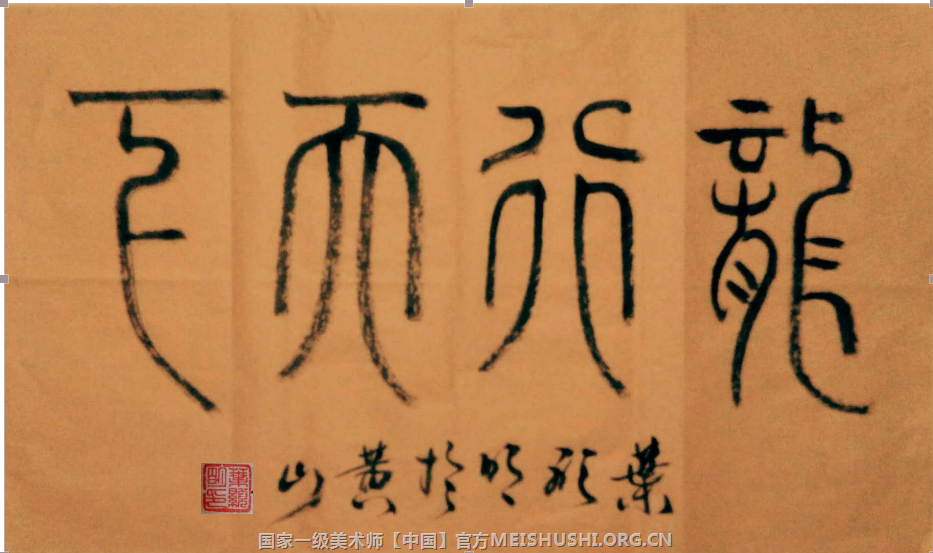 龍行天下
葉顯明於黄山
葉顯明印
国家一级美术师【中国】官方MEISHUSHI.ORG.CN